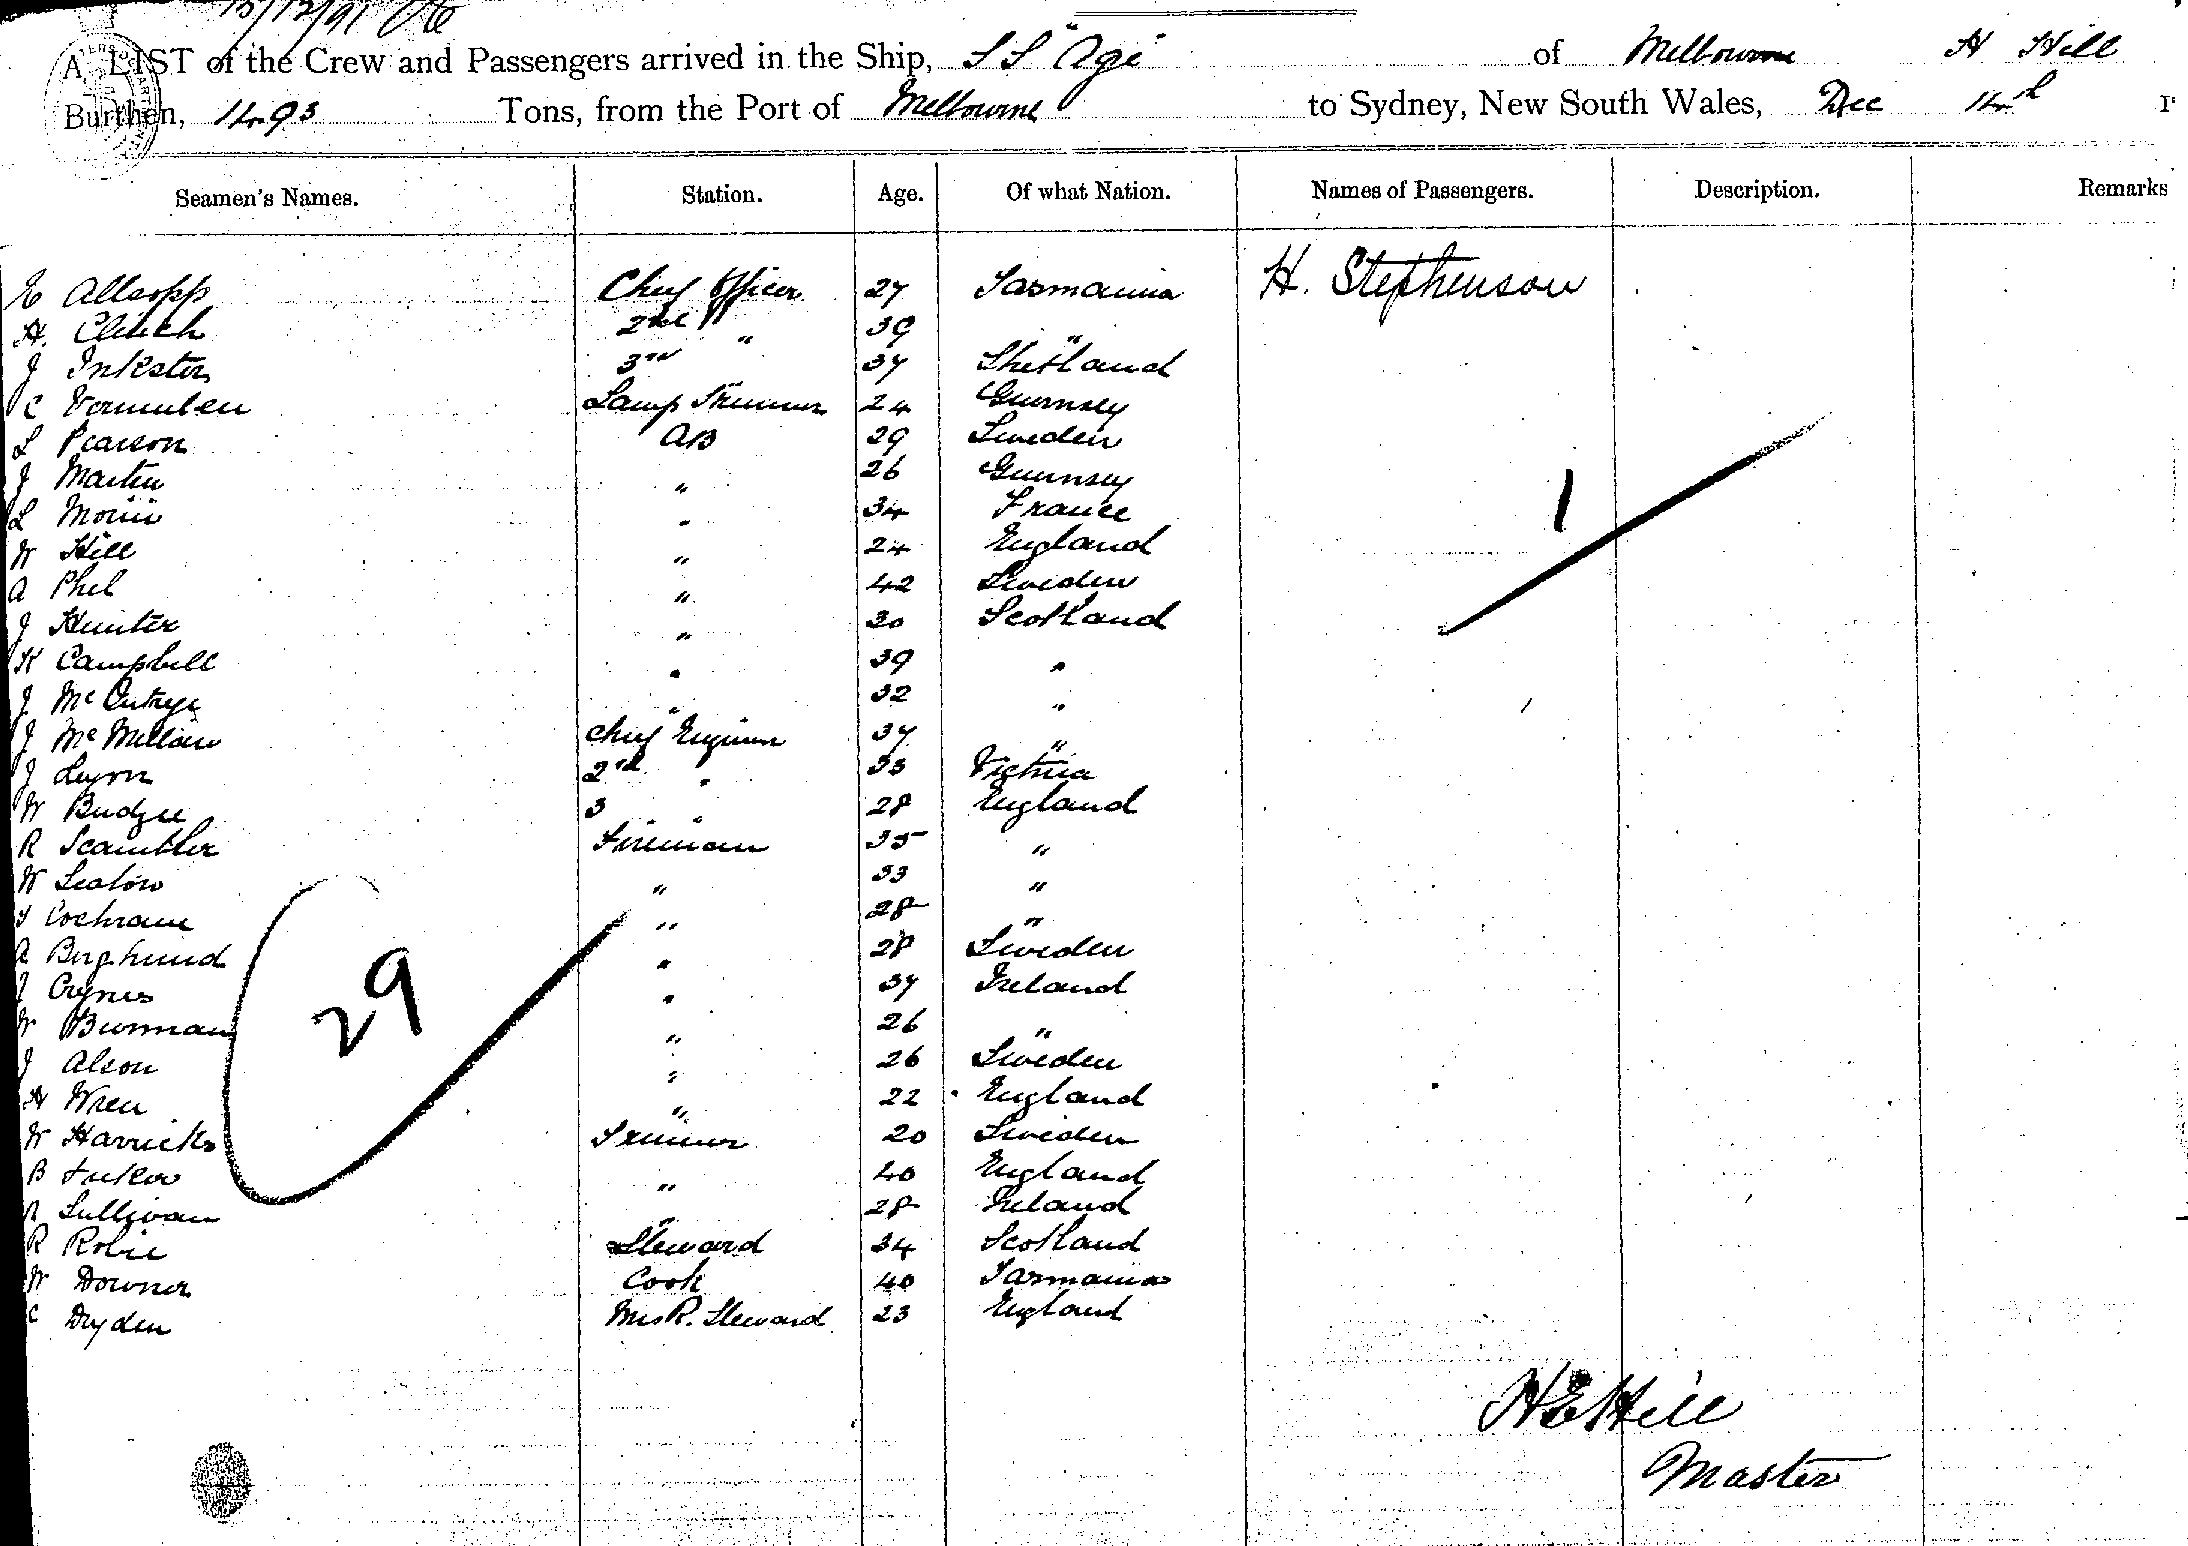 15/12/91
A LIST of the Crew and Passengers arrived in the Ship, SS "Age" of Melbourne H Hill
Burthen, 1493 Tons, from the Port of Melbourne to Sydney, New South Wales, Dec 14th
Seamen's Names. Station. Age. Of what Nation. Names of Passengers. Description. Remarks
E Allsopp Chief Officer 27 Tasmania H. Stephenson
H. Clinch 2nd " 39 "
J Inkster 3rd " 37 Shetland
C Vermulen Lamp Trimmer 24 Guernsey
L Pearson AB 29 Sweden
J Martin " 26 Guernsey
L " 34 France
W Hill " 24 England
A Phel " 42 Sweden
J Hunter " 30 Scotland
K Campbell " 39 "
J " 32 "
J McMillan Chief Engineer 37 "
J Lyon 2nd " 33 Victoria
W Budge 3 " 28 England
R Scambler Fireman 35 "
W " 33 "
T Cochrane " 28 "
A Berghund " 28 Sweden
J " 37 Ireland
W Burman " 26 "
J Alson " 26 Sweden
H Wren " 22 England
W Harricks Trimmer 20 Sweden
B " 40 England
R Sullivan " 28 Ireland
R Robie Steward 34 Scotland
W Downer Cook 40 Tasmania
C Dryden Mes R. Steward 23 England
1
29
H E Hill
Master